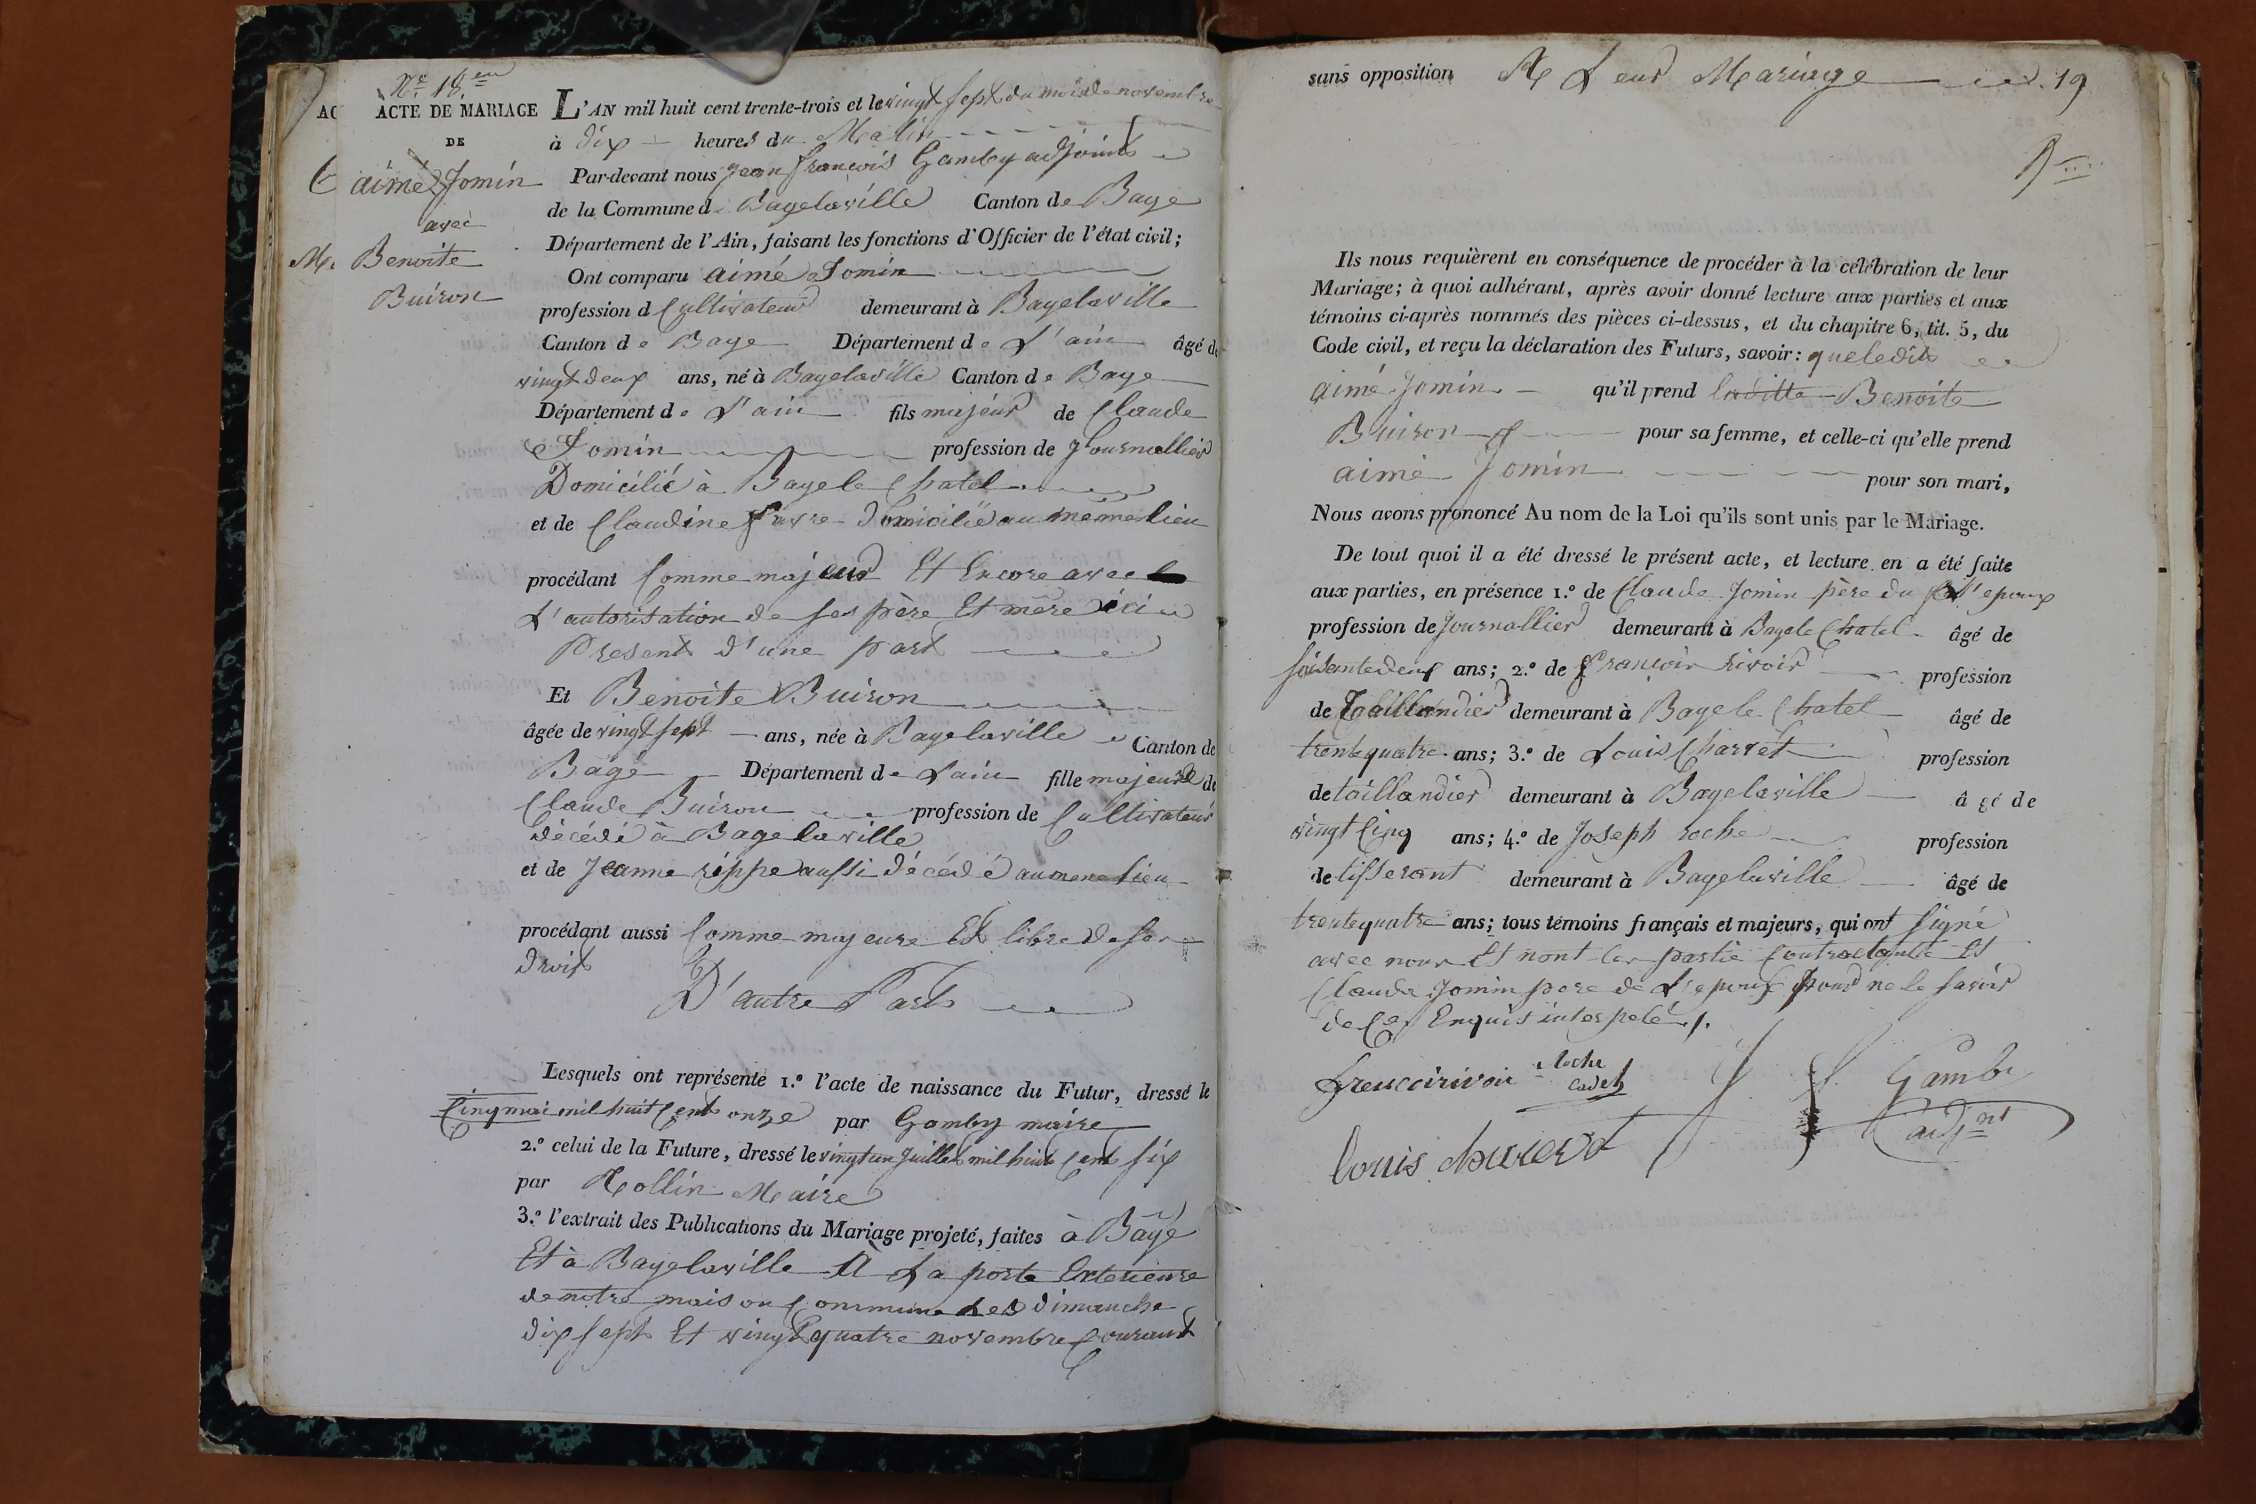 N.º 18.eme
ACTE DE MARIAGE
DE
aimé Jomin
avec
Benoite
Buiron
AC
M.
L'AN mil huit cent trente-trois et le vingt sept du mois de novembre
à dix heures du Matin
Par-devant nous jean francois Gamby adjoint
de la Commune d Bagelaville Canton de Bage
Département de l'Ain, faisant les fonctions d'Officier de l'état civil;
Ont comparu aimé Jomin
profession d Cultivateur demeurant à Bagelaville
Canton de Bage Département de L'ain âgé de
vingt deux ans, né à Bagelaville Canton de Bage
Département de L'ain fils majeur de Claude
Jomin profession de Journallier
Domicilié à Bagele Chatel
et de Claudine favre Domicilié au même lieu
procédant Comme majeur Et Encore avec
L'autorisation de ses père Et mère ici
Present d'une part
Et Benoite Buiron
âgée de vingt sept ans, née à Bagelaville Canton de
Bagé Département de Lain fille majeure de
Claude Buiron profession de Cultivateur
décédé à Bagelaville
et de Jeanne réppe aussi décédé au meme lieu
procédant aussi Comme majeure Et libre de ses
droit
D'autre Part
Lesquels ont représenté 1.º l'acte de naissance du Futur, dressé le
Cinq mai mil huit Cent onze par Gamby maire
2.º celui de la Future, dressé le vingt un juillet mil huit Cent six
par Rollin Maire
3.º l'extrait des Publications du Mariage projeté, faites à Bagé
Et à Bagelaville A La porte Exterieure
de notre maison Commune Les dimanche
dix sept Et vingt quatre novembre Courant
sans opposition A Leur Mariage 19
Ils nous requièrent en conséquence de procéder à la célébration de leur
Mariage; à quoi adhérant, après avoir donné lecture aux parties et aux
témoins ci-après nommés des pièces ci-dessus, et du chapitre 6, tit. 5, du
Code civil, et reçu la déclaration des Futurs, savoir: que ledit
aimé Jomin qu'il prend laditte Benoite
Buiron pour sa femme, et celle-ci qu'elle prend
aimé Jomin pour son mari,
Nous avons prononcé Au nom de la Loi qu'ils sont unis par le Mariage.
De tout quoi il a été dressé le présent acte, et lecture en a été faite
aux parties, en présence 1.º de Claude Jomin père du L'epoux
profession de Journallier demeurant à Bagele Chatel âgé de
soisante deux ans; 2.º de francois rivoir profession
de Taillandier demeurant à Bagele Chatel âgé de
trente quatre ans; 3.º de Louis Charvet profession
de taillandier demeurant à Bagelaville âgé de
vingt Cinq ans; 4.º de Joseph roche profession
de tisserant demeurant à Bagelaville âgé de
trente quatre ans; tous témoins français et majeurs, qui ont signé
avec nous Et nont les partie Contractante Et
Claude Jomin pere de L'epoux pour ne le savoir
de Ces Enquis interpelé
francoirivoir
Roche
Cadet
J. f. Gambi
adjnt
louis charvet